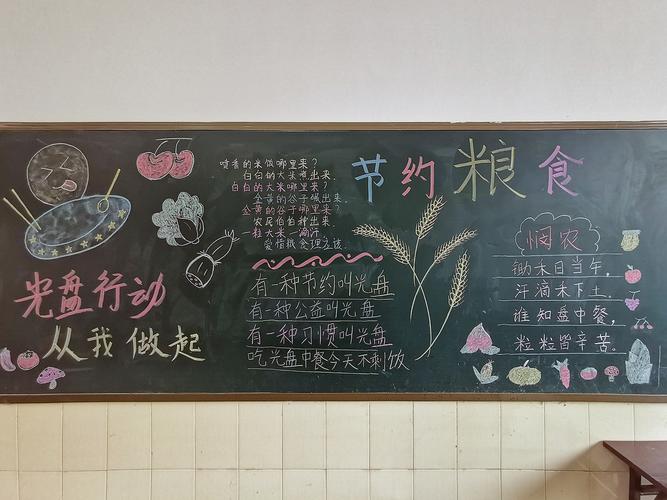 节约粮食
光盘行动
从我做起
喷香的米饭哪里来?
白白的大米煮出来.
白白的大米哪里来?
金黄的谷子碾出来.
金黄的谷子哪里来?
农民伯伯种出来.
一粒大米一滴汗
爱惜粮食理应该.
有一种节约叫光盘
有一种公益叫光盘
有一种习惯叫光盘
吃光盘中餐今天不剩饭
悯农
锄禾日当午,
汗滴禾下土.
谁知盘中餐,
粒粒皆辛苦.